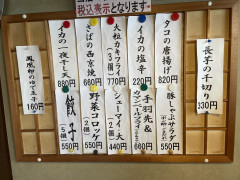 税込表示となります
長芋の千切り
330円
タコの唐揚げ
820円
イカの塩辛
220円
大粒カキフライ
(3個)
770円
さばの西京焼
660円
イカの一夜干し天
880円
豚しゃぶサラダ
550円
手羽先&
660円
シューマイ大
(2個)
440円
野菜コロッケ
(2個)
550円
餃子
(5個)
550円
160円